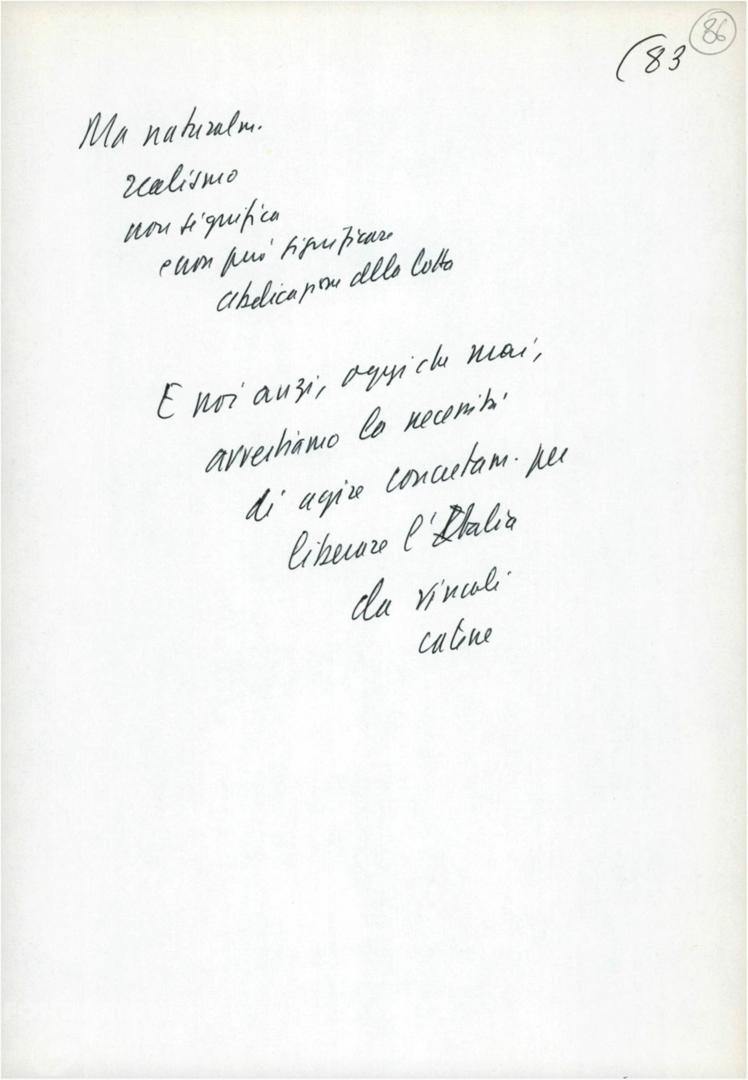 86
(83
Ma naturalm.
realismo
non significa
e non può significare
abdicazione della lotta
E noi anzi, oggi che mai,
avvertiamo la necessità
di agire concretam. per
liberare l'Italia
da vincoli
catene